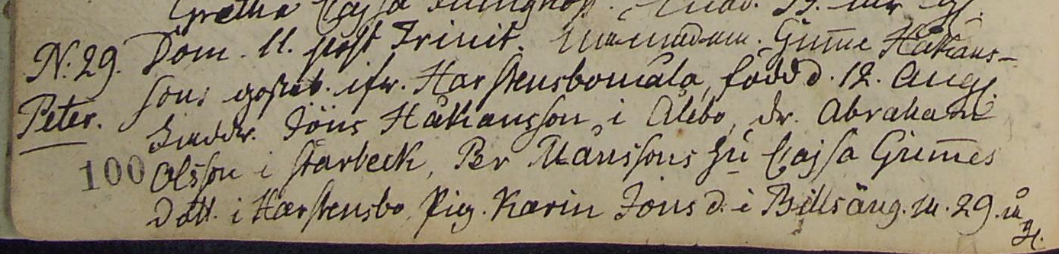 Gretha Cajsa
N. 29. Dom. 11. post Trinit. Gumme Håkans-
Peter. sons gosseb. ifr. Harstensbomåla, född d. 12. Aug.
Faddr. Jöns Håkansson i Alebo, dr. Abraham
100 Olsson i Starbeck, Per Månssons hu Cajsa Gummes
Dott. i Harstensbo, Pig. Karin Jöns d. i Billsäng. M. 29. år